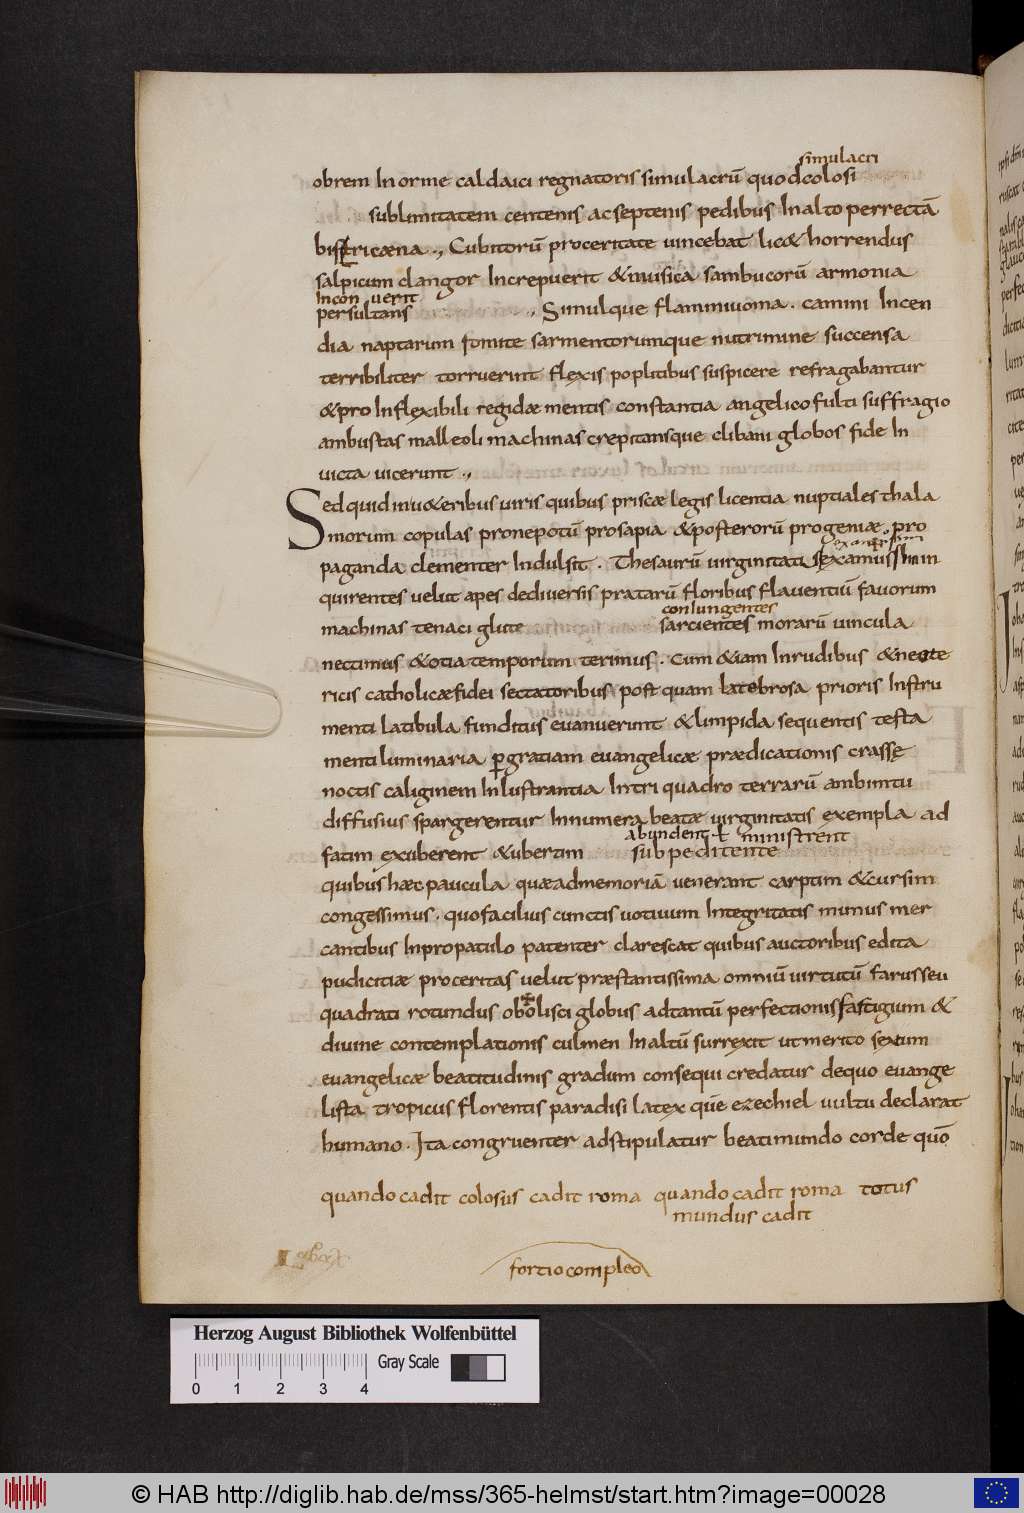 simulacri
obrem In orme caldaici regnatoris simulacrū quod colosi
sublimitatem centenis ac septenis pedibus In alto perrectā
bistricaena ., Cubitorū proceritate uincebat lic& horrendus
salpicum clangor Increpuerit & musica sambucorū armonia
Incon uerit
persultans ., Simulque flammiuoma . camini Incen
dia naptarum fomite sarmentorumque nutrimine succensa
terribiliter torruerint flexis poplitibus suspicere refragabantur
& pro Inflexibili regidæ mentis constantia angelico fulti suffragio
ambustas malleoli machinas crepitansque clibani globos fide In
uicta uicerunt .,
Sed quid in u&eribus uiris quibus priscæ legis licentia nuptiales thala
morum copulas pronepotū prosapia & posterorū progeniæ pro
paganda clementer Indulsit . Thesaurū uirginitati sexamussim In
quirentes uelut apes de diuersis pratarū floribus flauentiū fauorum
coniungentes
machinas tenaci glute sarcientes morarū uincula
nectimus & otia temporum terimus . Cum &iam In rudibus & neote
ricis catholicæ fidei sectatoribus post quam latebrosa prioris Instru
menti latibula funditus euanuerunt & limpida sequentis testa
menti luminaria p gratiam euangelicæ prædicationis crassę
noctis caliginem Inlustrantia Intri quadro terrarū ambimtu
diffusius spargerentur Innumera beatæ uirginitatis exempla ad
abundent ł ministrent
fatim exuberent & ubertim subpeditente
quibus hæc paucula quæ ad memoriā uenerant carptim & cursim
congessimus . quo facilius cunctis uotiuum Integritatis munus mer
cantibus In propatulo patenter clarescat quibus auctoribus edita
pudicitiæ proceritas uelut præstantissima omniū uirtutū farus seu
quadrati rotundus obolisci globus ad tantū perfectionis fastigium &
diuine contemplationis culmen In altū surrexit ut merito sextum
euangelicæ beatitudinis gradum consequi credatur de quo euange
lista tropicus florentis paradisi latex quē ezechiel uultu declarat
humano . Ita congruenter adstipulatur beati mundo corde quō
quando cadit colosus cadit roma quando cadit roma totus
mundus cadit
fortio compleo
Herzog August Bibliothek Wolfenbüttel
Gray Scale
0 1 2 3 4
© HAB http://diglib.hab.de/mss/365-helmst/start.htm?image=00028